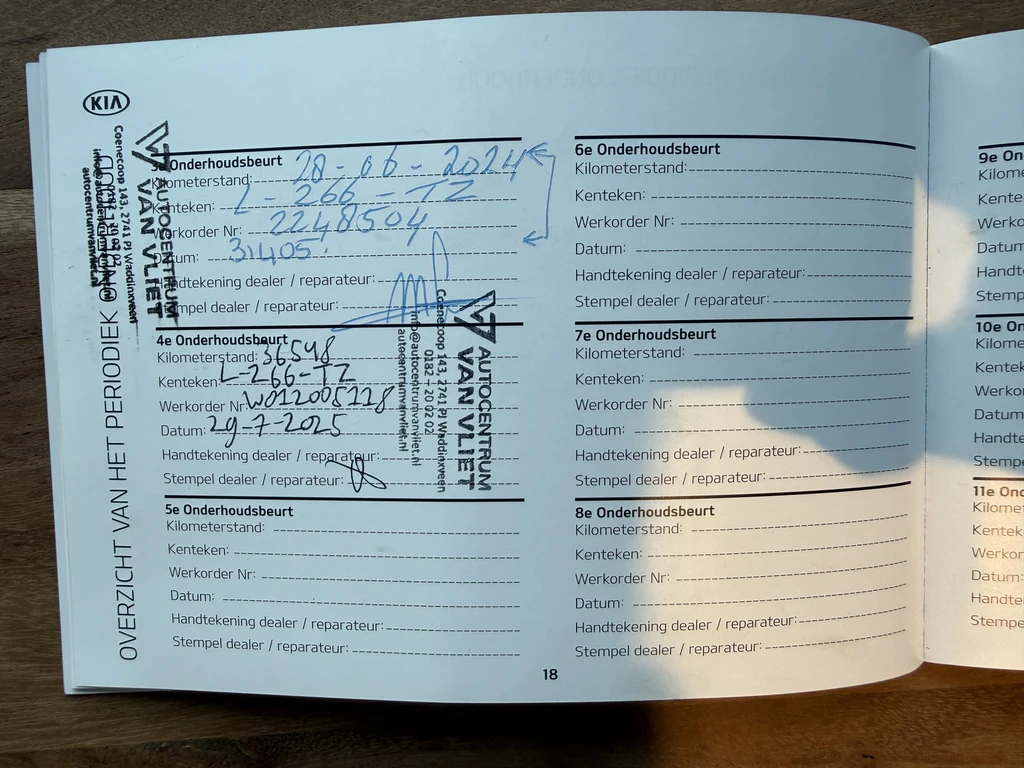 KIA
OVERZICHT VAN HET PERIODIEK
AUTOCENTRUM
VAN VLIET
Coenecoop 143, 2741 PJ Waddinxveen
0182 - 20 02 02
info@autocentrumvanvliet.nl
autocentrumvanvliet.nl
Onderhoudsbeurt
Kilometerstand: 28-06-2024
Kenteken: L-266-TZ
Werkorder Nr: 2248504
Datum: 31405
Handtekening dealer / reparateur:
Stempel dealer / reparateur:
4e Onderhoudsbeurt
Kilometerstand: 36548
Kenteken: L-266-TZ
Werkorder Nr: W012005118
Datum: 29-7-2025
Handtekening dealer / reparateur:
Stempel dealer / reparateur:
AUTOCENTRUM
VAN VLIET
Coenecoop 143, 2741 PJ Waddinxveen
0182 - 20 02 02
info@autocentrumvanvliet.nl
autocentrumvanvliet.nl
5e Onderhoudsbeurt
Kilometerstand:
Kenteken:
Werkorder Nr:
Datum:
Handtekening dealer / reparateur:
Stempel dealer / reparateur:
6e Onderhoudsbeurt
Kilometerstand:
Kenteken:
Werkorder Nr:
Datum:
Handtekening dealer / reparateur:
Stempel dealer / reparateur:
7e Onderhoudsbeurt
Kilometerstand:
Kenteken:
Werkorder Nr:
Datum:
Handtekening dealer / reparateur:
Stempel dealer / reparateur:
8e Onderhoudsbeurt
Kilometerstand:
Kenteken:
Werkorder Nr:
Datum:
Handtekening dealer / reparateur:
Stempel dealer / reparateur:
18
9e On
Kilome
Kente
Werko
Datum
Handt
Stemp
10e On
Kilome
Kentek
Werkor
Datum
Handte
Stempe
11e Ond
Kilomet
Kentek
Werkor
Datum:
Handte
Stempe